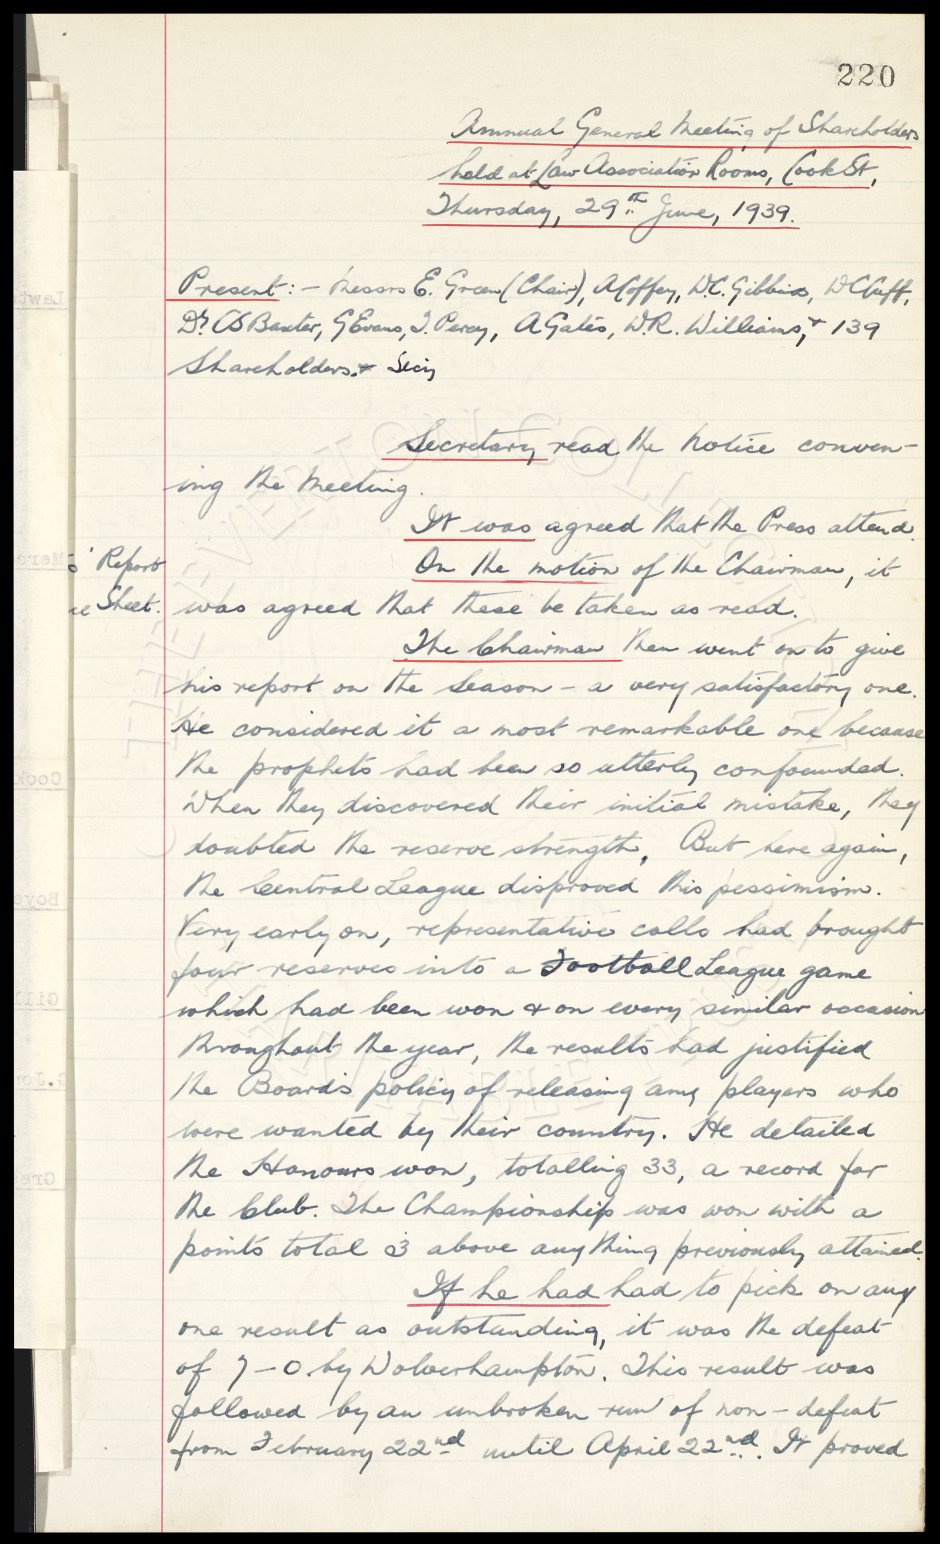 220
Annual General Meeting of Shareholders
held at Law Association Rooms, Cook St,
Thursday, 29th June, 1939.
Present:- Messrs E. Green (Chair), A Coffey, W.C. Gibbins, W C Cuff,
Dr. CS Baxter, G Evans, J. Percy, A Gates, W.R. Williams, + 139
Shareholders. + Secy
Secretary read the Notice conven-
ing the Meeting.
It was agreed that the Press attend.
s' Report
On the motion of the Chairman, it
ce Sheet.
was agreed that these be taken as read.
The Chairman then went on to give
his report on the Season - a very satisfactory one.
He considered it a most remarkable one because
the prophets had been so utterly confounded.
When they discovered their initial mistake, they
doubted the reserve strength. But here again,
the Central League disproved this pessimism.
Very early on, representative calls had brought
four reserves into a Football League game
which had been won & on every similar occasion
throughout the year, the results had justified
the Board's policy of releasing any players who
were wanted by their country. He detailed
the Honours won, totalling 33, a record for
the Club. The Championship was won with a
points total 3 above anything previously attained.
If he had had to pick on any
one result as outstanding, it was the defeat
of 7-0 by Wolverhampton. This result was
followed by an unbroken run of non-defeat
from February 22nd until April 22nd. It proved
THE EVERTON COLLECTION
CHARITABLE TRUST